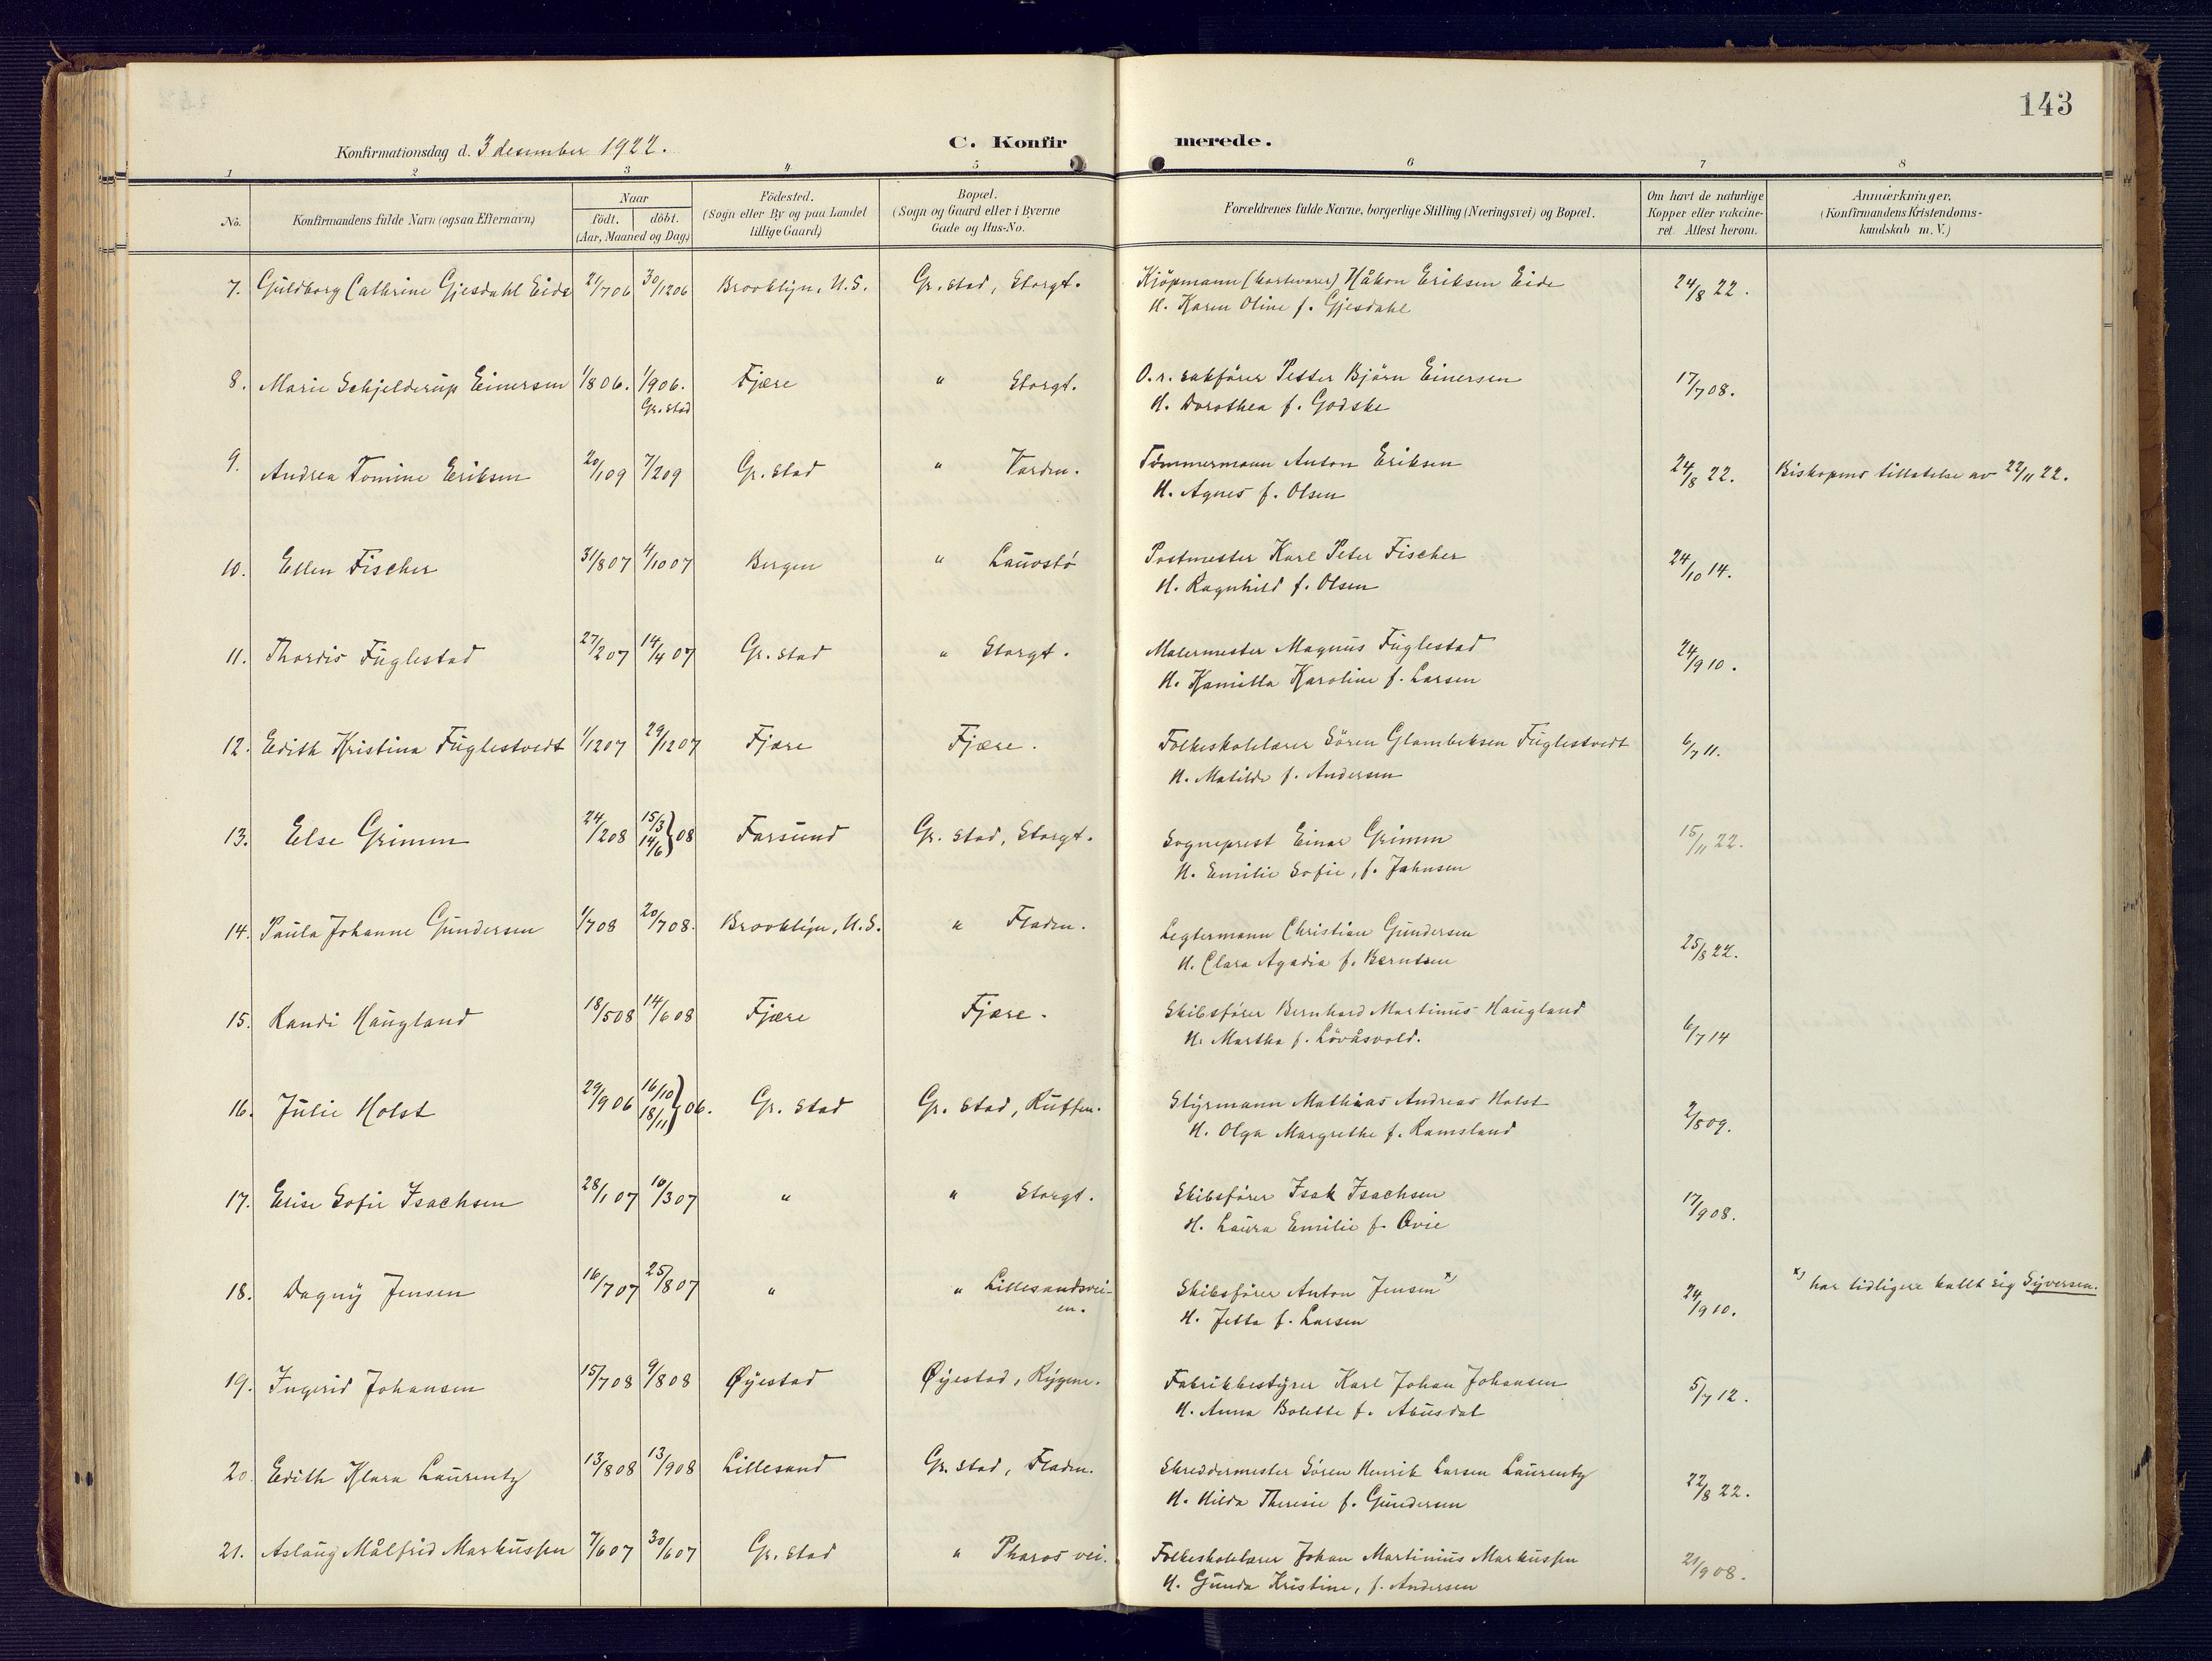 143
Konfirmationsdag d. 3 desember 1922.
C. Konfirmerede.
1 2 3 4 5 6 7 8
No.
Konfirmandens fulde Navn (ogsaa Efternavn)
Naar
födt. döbt.
(Aar, Maaned og Dag)
Födested.
(Sogn eller By og paa Landet
tillige Gaard)
Bopæl.
(Sogn og Gaard eller i Byerne
Gade og Hus-No.
Forældrenes fulde Navne, borgerlige Stilling (Næringsvei) og Bopæl.
Om havt de naturlige
Kopper eller vakcine-
ret. Attest herom.
Anmærkninger,
(Konfirmandens Kristendoms-
kundskab m. V.)
7. Guldborg Cathrine Gjesdahl Eide 21/706 30/1206 Brooklyn, U.S. Gr.stad, Storgt. Kjöpmann (kortvarer) Håkon Eriksen Eide 24/8 22.
H. Karen Oline f. Gjesdahl
8. Marie Schjelderup Einersen 1/806. 1/906. Fjære " Storgt. O.r.sakförer Petter Björn Einersen 17/708.
Gr.stad H. Dorothea f. Godske
9. Andrea Tomine Eriksen 20/109 7/209 Gr.stad " Varden. Tömmermann Anton Eriksen 24/8 22. Biskopens tillatelse av 22/11 22.
H. Agnes f. Olsen
10. Ellen Fischer 31/807 4/1007 Bergen " Lauvstö Postmester Karl Peter Fischer 24/10 14.
H. Ragnhild f. Olsen
11. Thordis Fuglestad 27/207 14/4 07 Gr.stad " Storgt. Malermester Magnus Fuglestad 24/910.
H. Kamilla Karoline f. Larsen
12. Edith Kristina Fuglestvedt 1/1207 29/1207 Fjære Fjære. Folkeskolelærer Sören Glambeksen Fuglestvedt 6/711.
H. Matilde f. Andersen
13. Else Grimm 24/208 15/3 14/6 } 08 Farsund Gr.stad, Storgt. Sogneprest Einar Grimm 15/11 22.
H. Emilie Sofie, f. Jahnsen
14. Paula Johanne Gundersen 1/708 20/708. Brooklyn, U.S. " Fladen. Legtermann Christian Gundersen 25/8 22.
H. Clara Agadia f. Berntsen
15. Randi Haugland 18/508 14/608 Fjære Fjære. Skibsförer Bernhard Martinus Haugland 6/714
H. Martha f. Lövåsvold.
16. Julie Holst 29/906 16/10 18/11 } 06. Gr.stad Gr.stad, Ruffen. Styrmann Mathias Andreas Holst 2/809.
H. Olga Margrethe f. Ramsland
17. Elise Sofie Isachsen 28/107 10/307 " " Storgt. Skibsförer Isak Isachsen 17/908.
H. Laura Emilie f. Evie
18. Dagny Jensen 16/707 25/807 " " Lillesandsvei- Skibsförer Anton Jensen x) 24/910. x) har tidligere kallt sig Syversen.
en. H. Jetta f. Larsen
19. Ingerid Johansen 15/708 9/808 Øyestad Øyestad, Rygene. Fabrikbestyrer Karl Johan Johansen 5/712.
H. Anna Bolette f. Abusdal
20. Edith Klara Laurentz 13/808 13/908 Lillesand Gr.stad, Fladen. Skreddermester Sören Henrik Larsen Laurentz 22/8 22.
H. Hilda Theresie f. Gundersen
21. Aslaug Målfrid Markussen 7/607 30/607 Gr.stad " Pharos vei. Folkeskolelærer Johan Martinius Markussen 21/908.
H. Gunda Kristine, f. Andersen